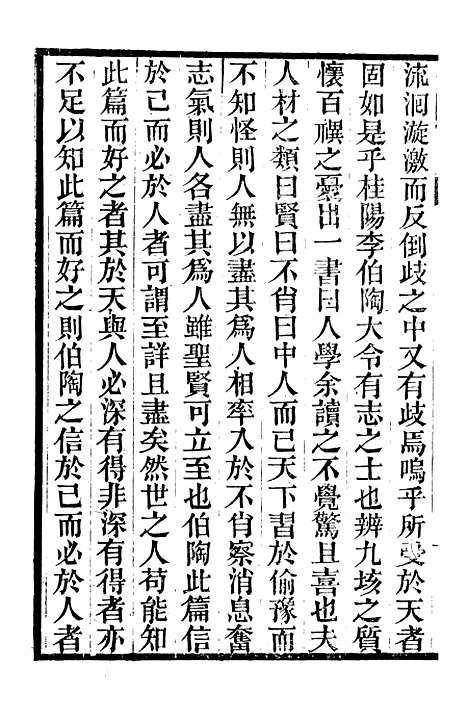 流洄漩激而反倒歧之中又有歧焉嗚乎所受於天者
固如是乎桂陽李伯陶大令有志之士也辨九垓之質
懷百禩之憂出一書曰人學余讀之不覺驚且喜也夫
人材之類曰賢曰不肖曰中人而已天下習於偷豫而
不知怪則人無以盡其為人相率入於不肖察消息奮
志氣則人各盡其為人雖聖賢可立至也伯陶此篇信
於己而必於人者可謂至詳且盡矣然世之人苟能知
此篇而好之者其於天與人必深有得非深有得者亦
不足以知此篇而好之則伯陶之信於己而必於人者